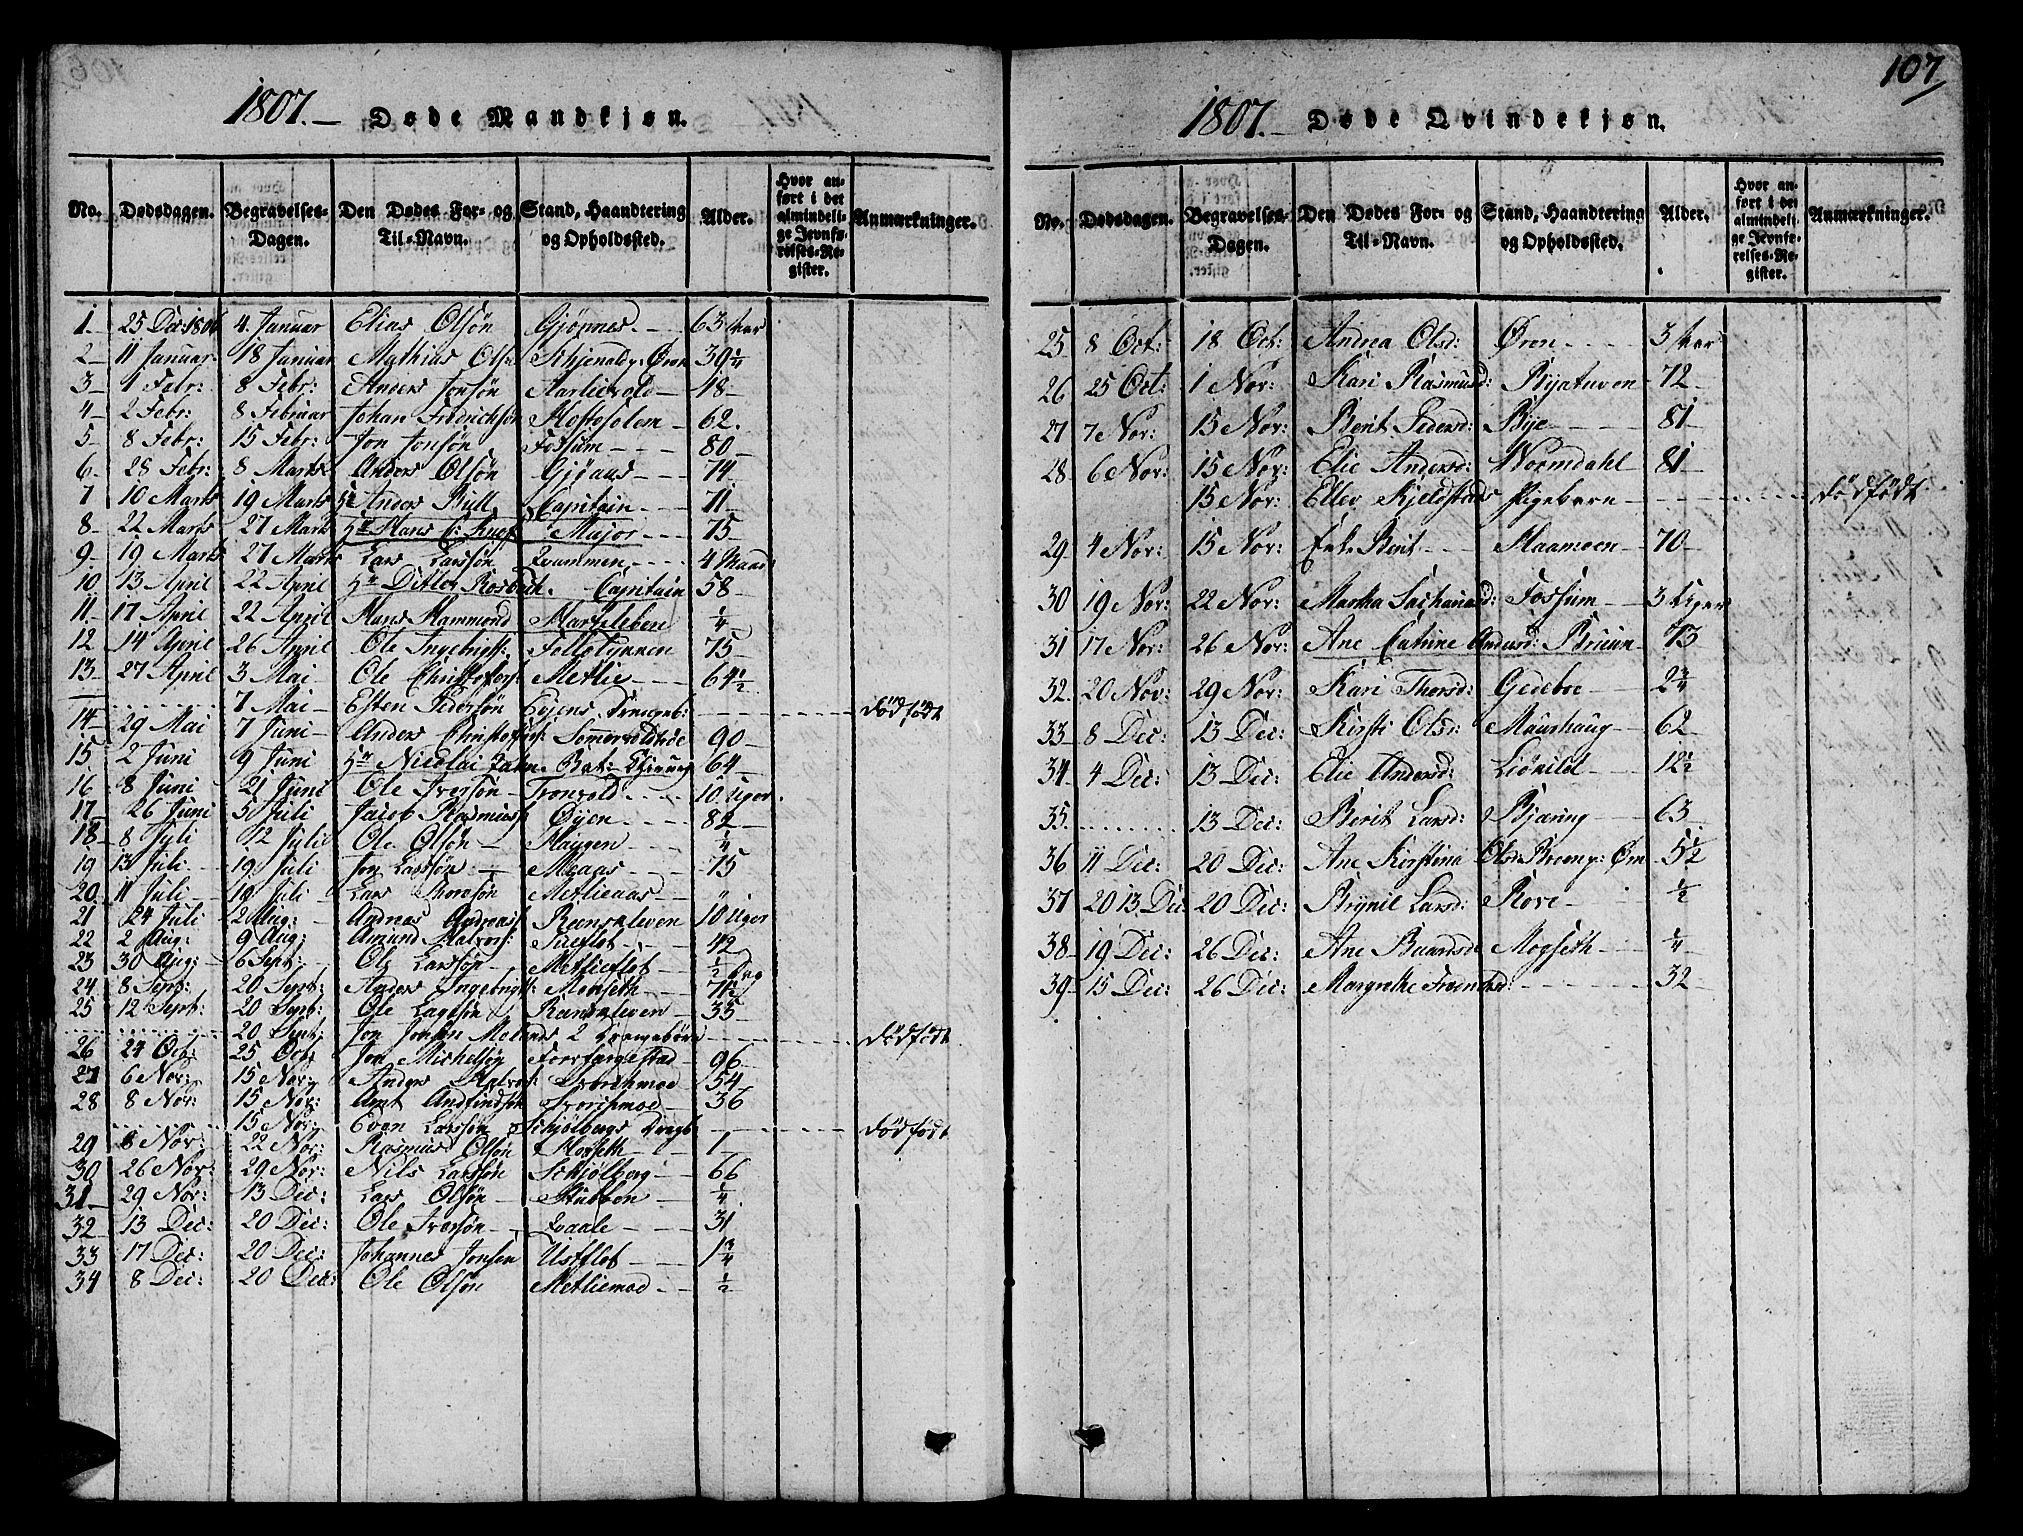 107
1807. — Døde Mandkjøn.
No. Dødsdagen. Begravelses-Dagen. Den Dødes For- og Til-Navn. Stand, Haandtering og Opholdssted. Alder. Hvor anført i det almindelige Jevnførelses-Register. Anmærkninger.
1. 25 Dec: 1806 4. Januar Elias Olsön Gjöpnes 63 Aar
2 11 Januar 18 Januar Mathias Ols: Ören 39 1/4
3 1 Febr: 8 Febr: Anders Jonsön 18
4 2 Febr: 8 Februar Johan Fredricksön 62.
5 8 Febr: 15 Febr: Jon Jonsön Fossum 80
6 28 Febr: 8 Marts Anders Olsön Gjöaas 74.
7 10 Marts 19 Marts Hr Anders Bull Capitain 71
8 22 Marts 27 Marts Hr Hans C: Major 75
9 19 Marts 27 Marts Lars Larsön Qvammen 4 Maad
10 13 April 22 April Hr Ditlev Capitain 58
11. 17 April 22 April Hans Hammond 1/4
12 14 April 26 April Ole Ingebrigts: 75
13 27 April 3 Mai Ole Christophers: Metlie 64 1/2
7 Mai Esten Pedersön Drengeb: dödfödt
14 29 Mai 7 Juni Anders Christophers: 90
15 2 Juni 9 Juni Hr Nicolai 64
16 8 Juni 21 Juni Ole Iversön Tronvold 10. Uger.
17 26 Juni 5 Juli Jacob Rasmus: Öyen 82
18 8 Juli 12 Juli Ole Olsön Haugen 1/4
19 13 Juli 19 Juli Jon Larsön Meaas 75
20 11 Juli 19 Juli Lars Metlieaas "
21 24 Juli 2 Aug: Andreas Andreas: 10 Uger
22 2 Aug: 9 Aug: Amund Halvors: 42
23 30 Aug: 6 Sept: Ole Larsön Metlieflot 1/2 Dag
24 8 Sept: 20 Sept: Anders Ingebrigts: Monseth
25 12 Sept: 20 Sept: Ole 35
20 Sept: Jon Jonsen 2 Drengebörn dödfödt
26 24 Oct: 25 Oct: Jon Michelsön 96
27 6 Nov: 15 Nov: Anders Halvors: 54
28 8 Nov: 15 Nov: Arnt Andfindsön 36
15 Nov: Even Larsön Schjölbergs Drengb: dödfödt
29 8 Nov: 22 Nov: Rasmus Olsön 1
30 26 Nov: 29 Nov: Nils Larsön Schjölberg 66
31 29 Nov: 13 Dec: Lars Olsön Stubben 1/4
32 13 Dec: 20 Dec: Ole Iversön Qvaale 31
33 17 Dec: 20 Dec: Johannes Jonsen Ustflot 1 3/4
34 8 Dec: 20 Dec: Ole Olsön Metliemoe 1/2
1807. — Døde Qvindekjøn.
No. Dødsdagen. Begravelses-Dagen. Den Dødes For- og Til-Navn. Stand, Haandtering og Opholdssted. Alder. Hvor anført i det almindelige Jevnførelses-Register. Anmærkninger.
25 8 Oct: 18 Oct: Andrea Olsd: Øren 3 Aar
26 25 Oct: 1 Nov: Kari Rasmusd: 72
27 7e Nov: 15 Nov: Berit Pedersd: Bye 81
28 6 Nov: 15 Nov: Elie Andersd: Wormdahl 81
15 Nov: Ellev Kjeldstads Pigebarn dödfödt
29 4 Nov: 15 Nov: Enk. Berit Maamoen 70
30 19 Nov: 22 Nov: Martha Fossum 3 Uger
31 17 Nov: 26 Nov: Ane Catrine Andersd: Bruun 73
32 20 Nov: 29 Nov: Kari Thorsd: Gedeboe 2 3/4
33 8 Dec: 13 Dec: Kirsti Olsd: Maurhaug 62
34 4 Dec: 13 Dec: Elie Andersd: Liönild 12 1/2
35 13 Dec: Berit Larsd: Bjøring 63
36 11 Dec: 20 Dec: Ane Kirstina Olsd: 5 1/2
37 20 13 Dec 20 Dec: Brynil Larsd: Rove 1/2
38 19 Dec: 26 Dec: Ane Baardsd: Mogseth 1/4
39 15 Dec: 26 Dec: Margrethe 32